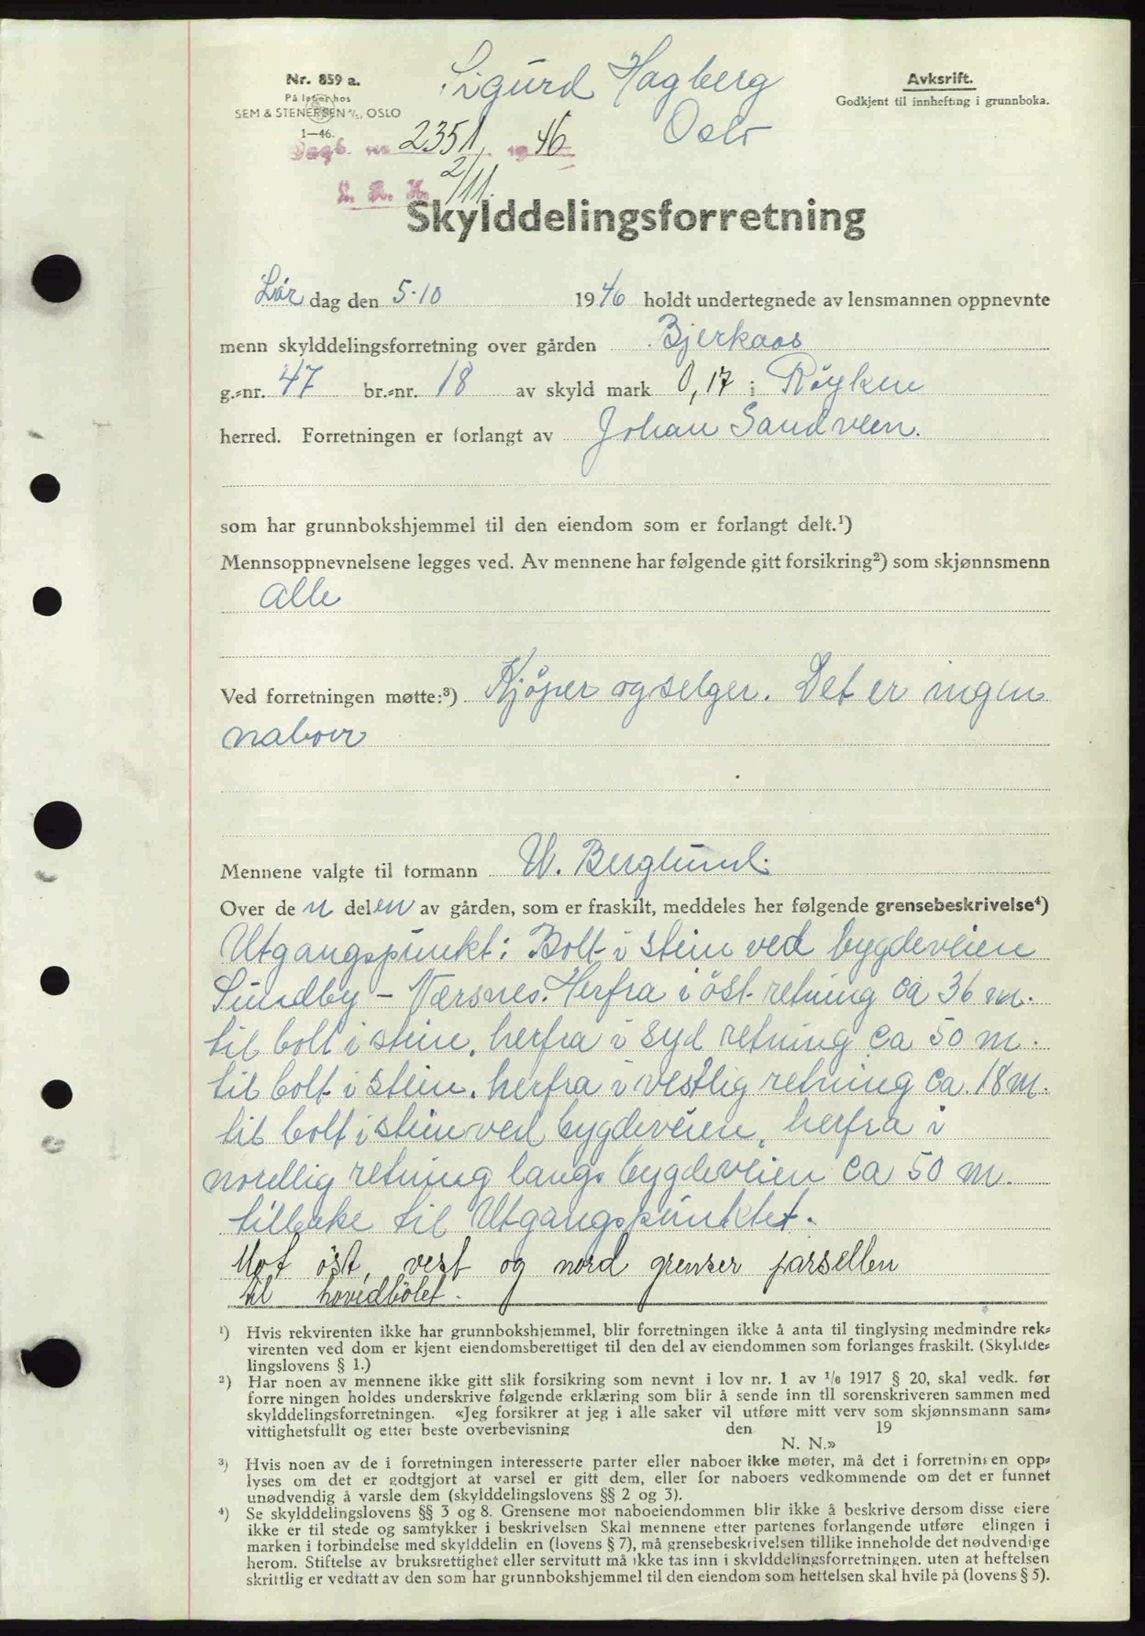 Nr. 859 a.
På lager hos
SEM & STENERSEN A/S, OSLO
1—46.
Sigurd Hagberg
Oslo
Avksrift.
Godkjent til innhefting i grunnboka.
Dagb. nr. 2351 1946
2/11.
Skylddelingsforretning
Lör dag den 5-10 1946 holdt undertegnede av lensmannen oppnevnte
menn skylddelingsforretning over gården Bjerkaas
g.-nr. 47 br.-nr. 18 av skyld mark 0,17 i Röyken
herred. Forretningen er forlangt av Johan Sandveen.
som har grunnbokshjemmel til den eiendom som er forlangt delt.¹)
Mennsoppnevnelsene legges ved. Av mennene har følgende gitt forsikring²) som skjønnsmenn
alle
Ved forretningen møtte:³) Kjöper og selger. Det er ingen
naboer
Mennene valgte til formann W. Berglund.
Over den delen av gården, som er fraskilt, meddeles her følgende grensebeskrivelse⁴)
Utgangspunkt: Bolt i stein ved bygdeveien
Sundby – Nærsnes. Herfra i öst. retning ca 36 m.
til bolt i stein, herfra i syd retning ca 50 m.
til bolt i stein. herfra i vestlig retning ca. 18 m.
til bolt i stein ved bygdeveien, herfra i
nordlig retning langs bygdeveien ca 50 m.
tilbake til Utgangspunktet.
Mot öst, vest og nord grenser parsellen
til hovedbölet.
¹) Hvis rekvirenten ikke har grunnbokshjemmel, blir forretningen ikke å anta til tinglysing medmindre rek-
virenten ved dom er kjent eiendomsberettiget til den del av eiendommen som forlanges fraskilt. (Skyldde-
lingslovens § 1.)
²) Har noen av mennene ikke gitt slik forsikring som nevnt i lov nr. 1 av 1/6 1917 § 20, skal vedk. før
forre ningen holdes underskrive følgende erklæring som blir å sende inn til sorenskriveren sammen med
skylddelingsforretningen. «Jeg forsikrer at jeg i alle saker vil utføre mitt verv som skjønnsmann sam-
vittighetsfullt og etter beste overbevisning den 19
N. N.»
³) Hvis noen av de i forretningen interesserte parter eller naboer ikke møter, må det i forretningen opp-
lyses om det er godtgjort at varsel er gitt dem, eller for naboers vedkommende om det er funnet
unødvendig å varsle dem (skylddelingslovens §§ 2 og 3).
⁴) Se skylddelingslovens §§ 3 og 8. Grensene mot naboeiendommen blir ikke å beskrive dersom disse eiere
ikke er til stede og samtykker i beskrivelsen Skal mennene etter partenes forlangende utføre elingen i
marken i forbindelse med skylddelin en (lovens § 7), må grensebeskrivelsen tillike inneholde det nødvendige
herom. Stiftelse av bruksrettighet eller servitutt må ikke tas inn i skylddelingsforretningen. uten at heftelsen
skriftlig er vedtatt av den som har grunnbokshjemmel til den eiendom som heftelsen skal hvile på (lovens § 5).